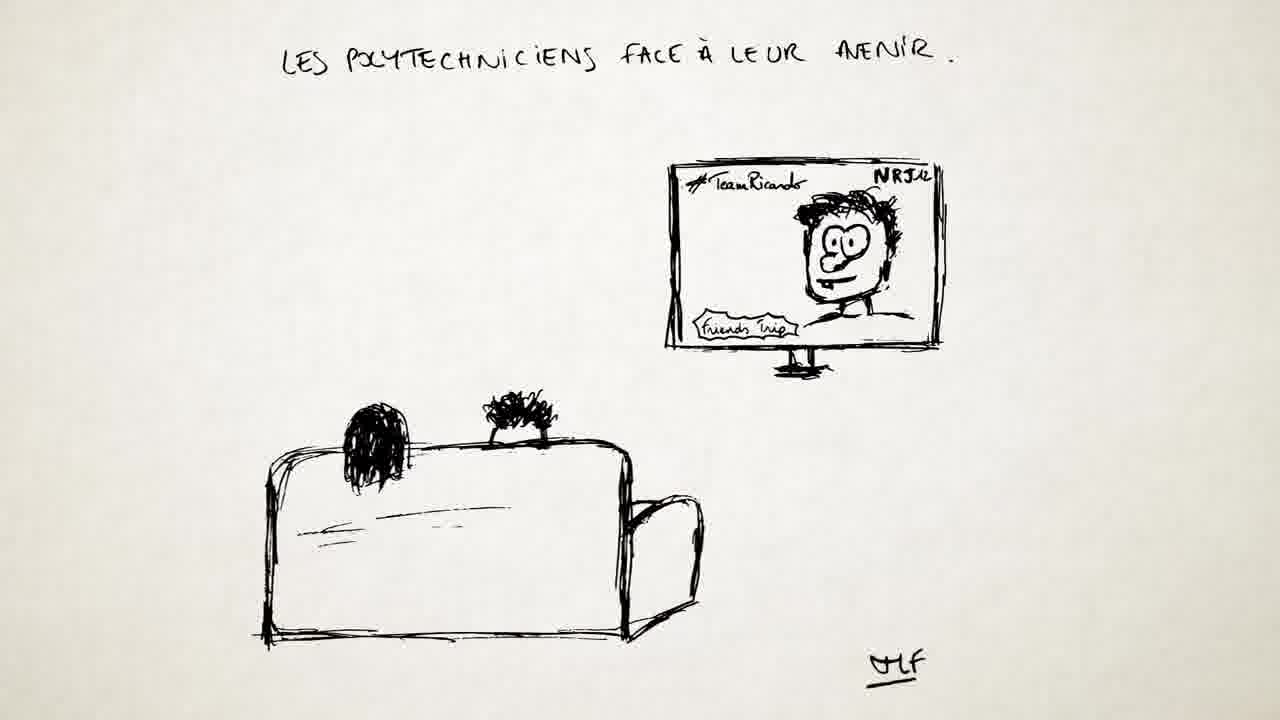 LES POLYTECHNICIENS FACE À LEUR AVENIR.
#TeamRicardo
NRJ12
Friends Trip
JHF